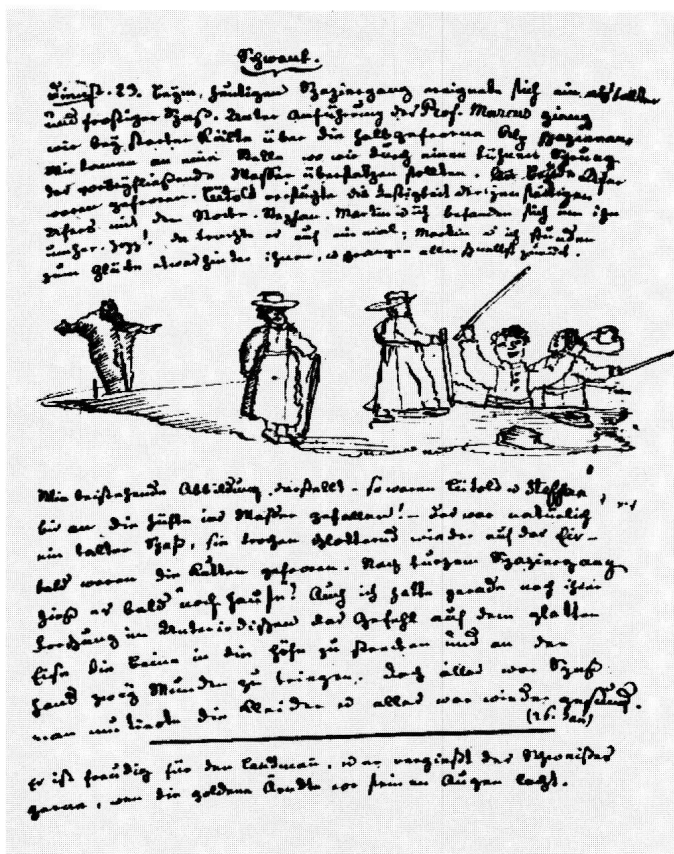 Schwank.
23. Beym heutigen Spaziergang ereignete sich ein
und frostiger Spaß. Unter Anführung des Prof. Marcus gieng
wir bey starker Kälte über die halbgefrorene spazieren
Wir kamen an eine Stelle wo wir durch einen kühnen Sprung
das vorbeyfließende Wasser übersetzen sollten. Ufer
waren gefroren. Leutold die Festigkeit des jenseitigen
Ufers mit dem Stocke. Martin u ich befanden sich um ihn
umher. da er auf ein mal; Martin u ich stunden
zum Glücke etwas hinter ihnen, u sprangen aller schnellst zurück.
Wie beistehende Abbildung darstellt - so waren Leutold u Steffen
bis an die Hüfte ins Wasser gefallen! - Das war natürlich
ein kalter Spaß, sie krochen schlotternd wieder auf das Eis -
bald waren die Kutten gefroren. Nach kurzem Spaziergang
hieß es bald "nach Hause"! Auch ich hatte gerade nach ihrer
im Unterirdischen das Gefehl auf dem glatten
Eise die Beine in die Höhe zu strecken und an der
Hand zwey Wunden zu kriegen. Doch alles war Spaß
man die Kleider u alles war wieder gesund.
(26. Jan)
Er ist freudig für den Landmann, u er vergießt den Schweiß
gerne, wen die goldene Ärndte vor seinen Augen lacht.